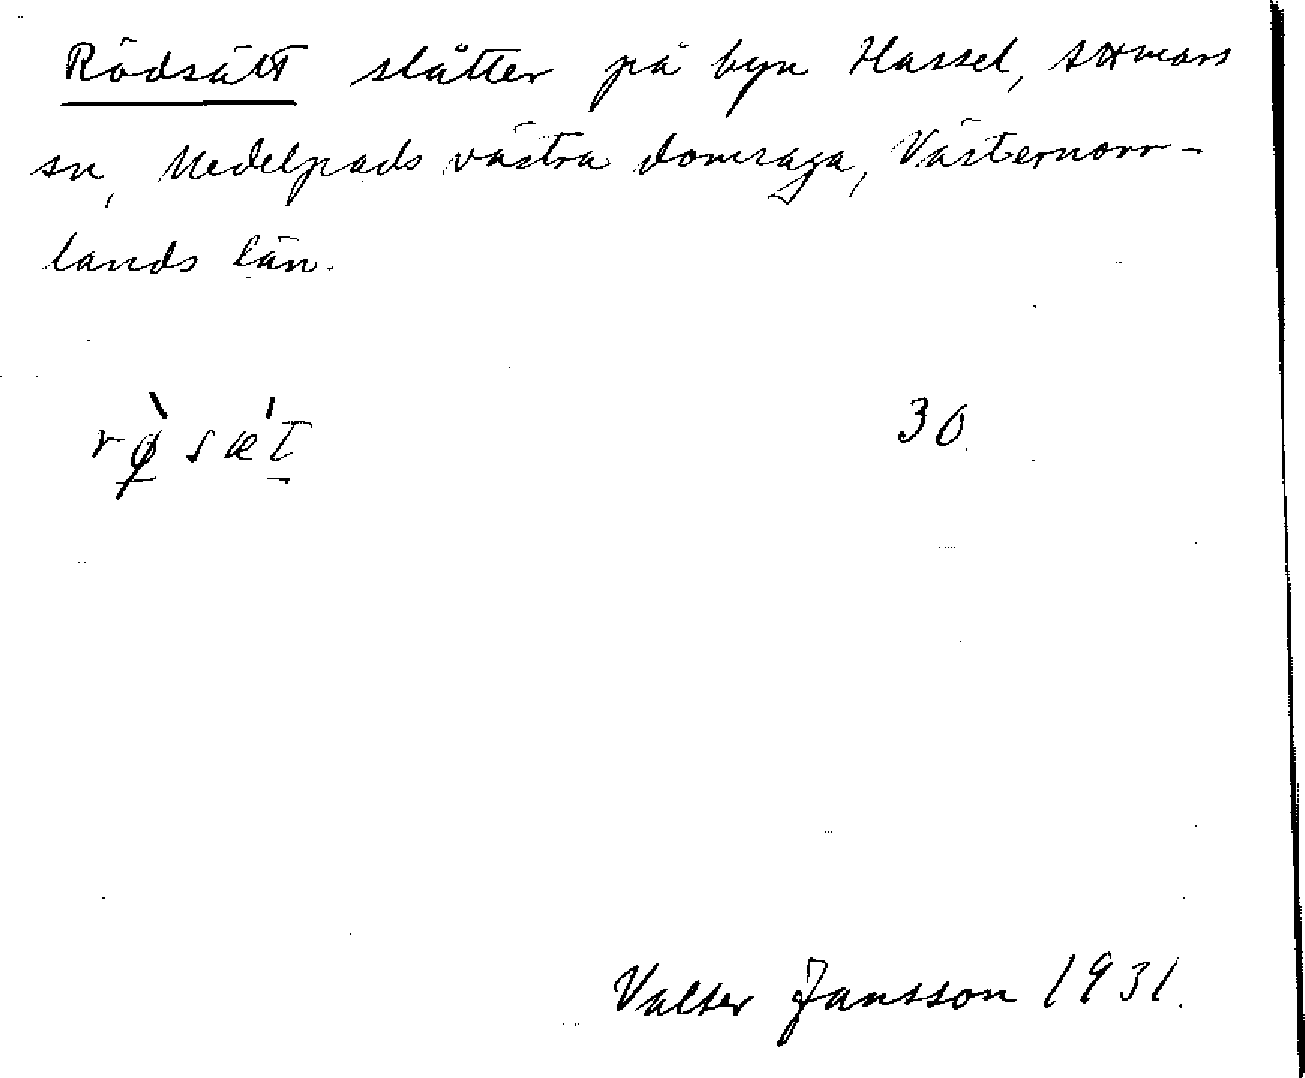 Rödsätt slåtter på byn Hassel, Attmars
sn, Medelpads västra domsaga, Västernorr-
lands län.
rø̀sæ't 30
Valter Jansson 1931.